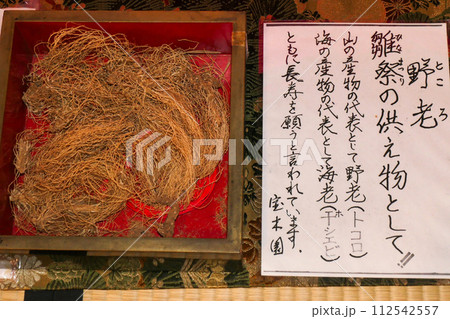 野老
ところ
雛祭の供え物として、
山の産物の代表として野老(トコロ)
海の産物の代表として海老(干シエビ)
ホ
ともに長寿を願うと言われています。
112542557